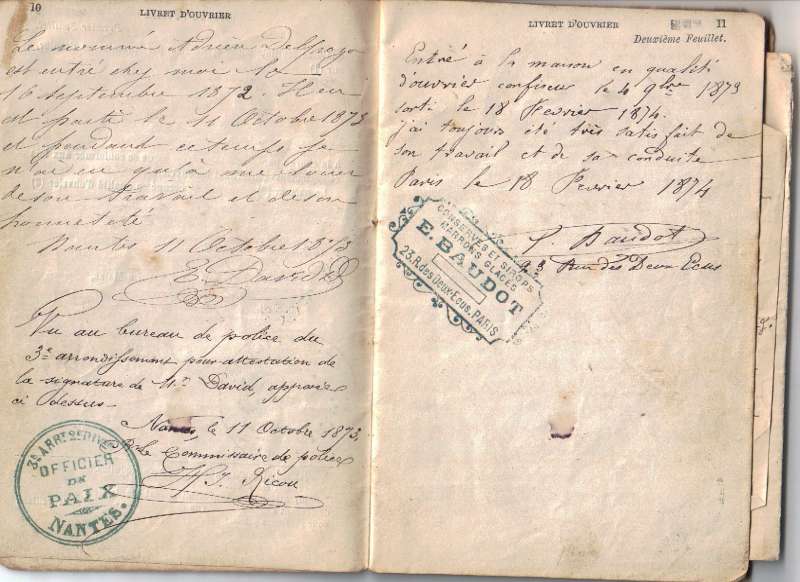 10
LIVRET D'OUVRIER
Le nommé Adrien
est entré chez moi le
16 Septembre 1872. Il en
est parti le 11 Octobre 1873
et pendant ce temps je
n'ai eu qu'à me louer
de son travail et de son
honneteté
Nantes 11 Octobre 1873
E. David
Vu au bureau de police du
3e arrondissement pour attestation de
la signature de Mr David, apposée
ci dessus.
Nantes, le 11 Octobre 1873,
Le Commissaire de police
Ricou
3e ARRt
OFFICIER
DE
PAIX
NANTES.
LIVRET D'OUVRIER
11
Deuxième Feuillet.
Entré à la maison en qualité
d'ouvrier confiseur le 4 9bre 1873
sorti le 18 Fevrier 1874.
j'ai toujours été très satisfait de
son travail et de sa conduite
Paris le 18 Fevrier 1874
Baudot
23 Rue des Deux Ecus
CONSERVES ET SIROPS
MARRONS GLACÉS
E. BAUDOT
23, R. des Deux-Ecus, PARIS